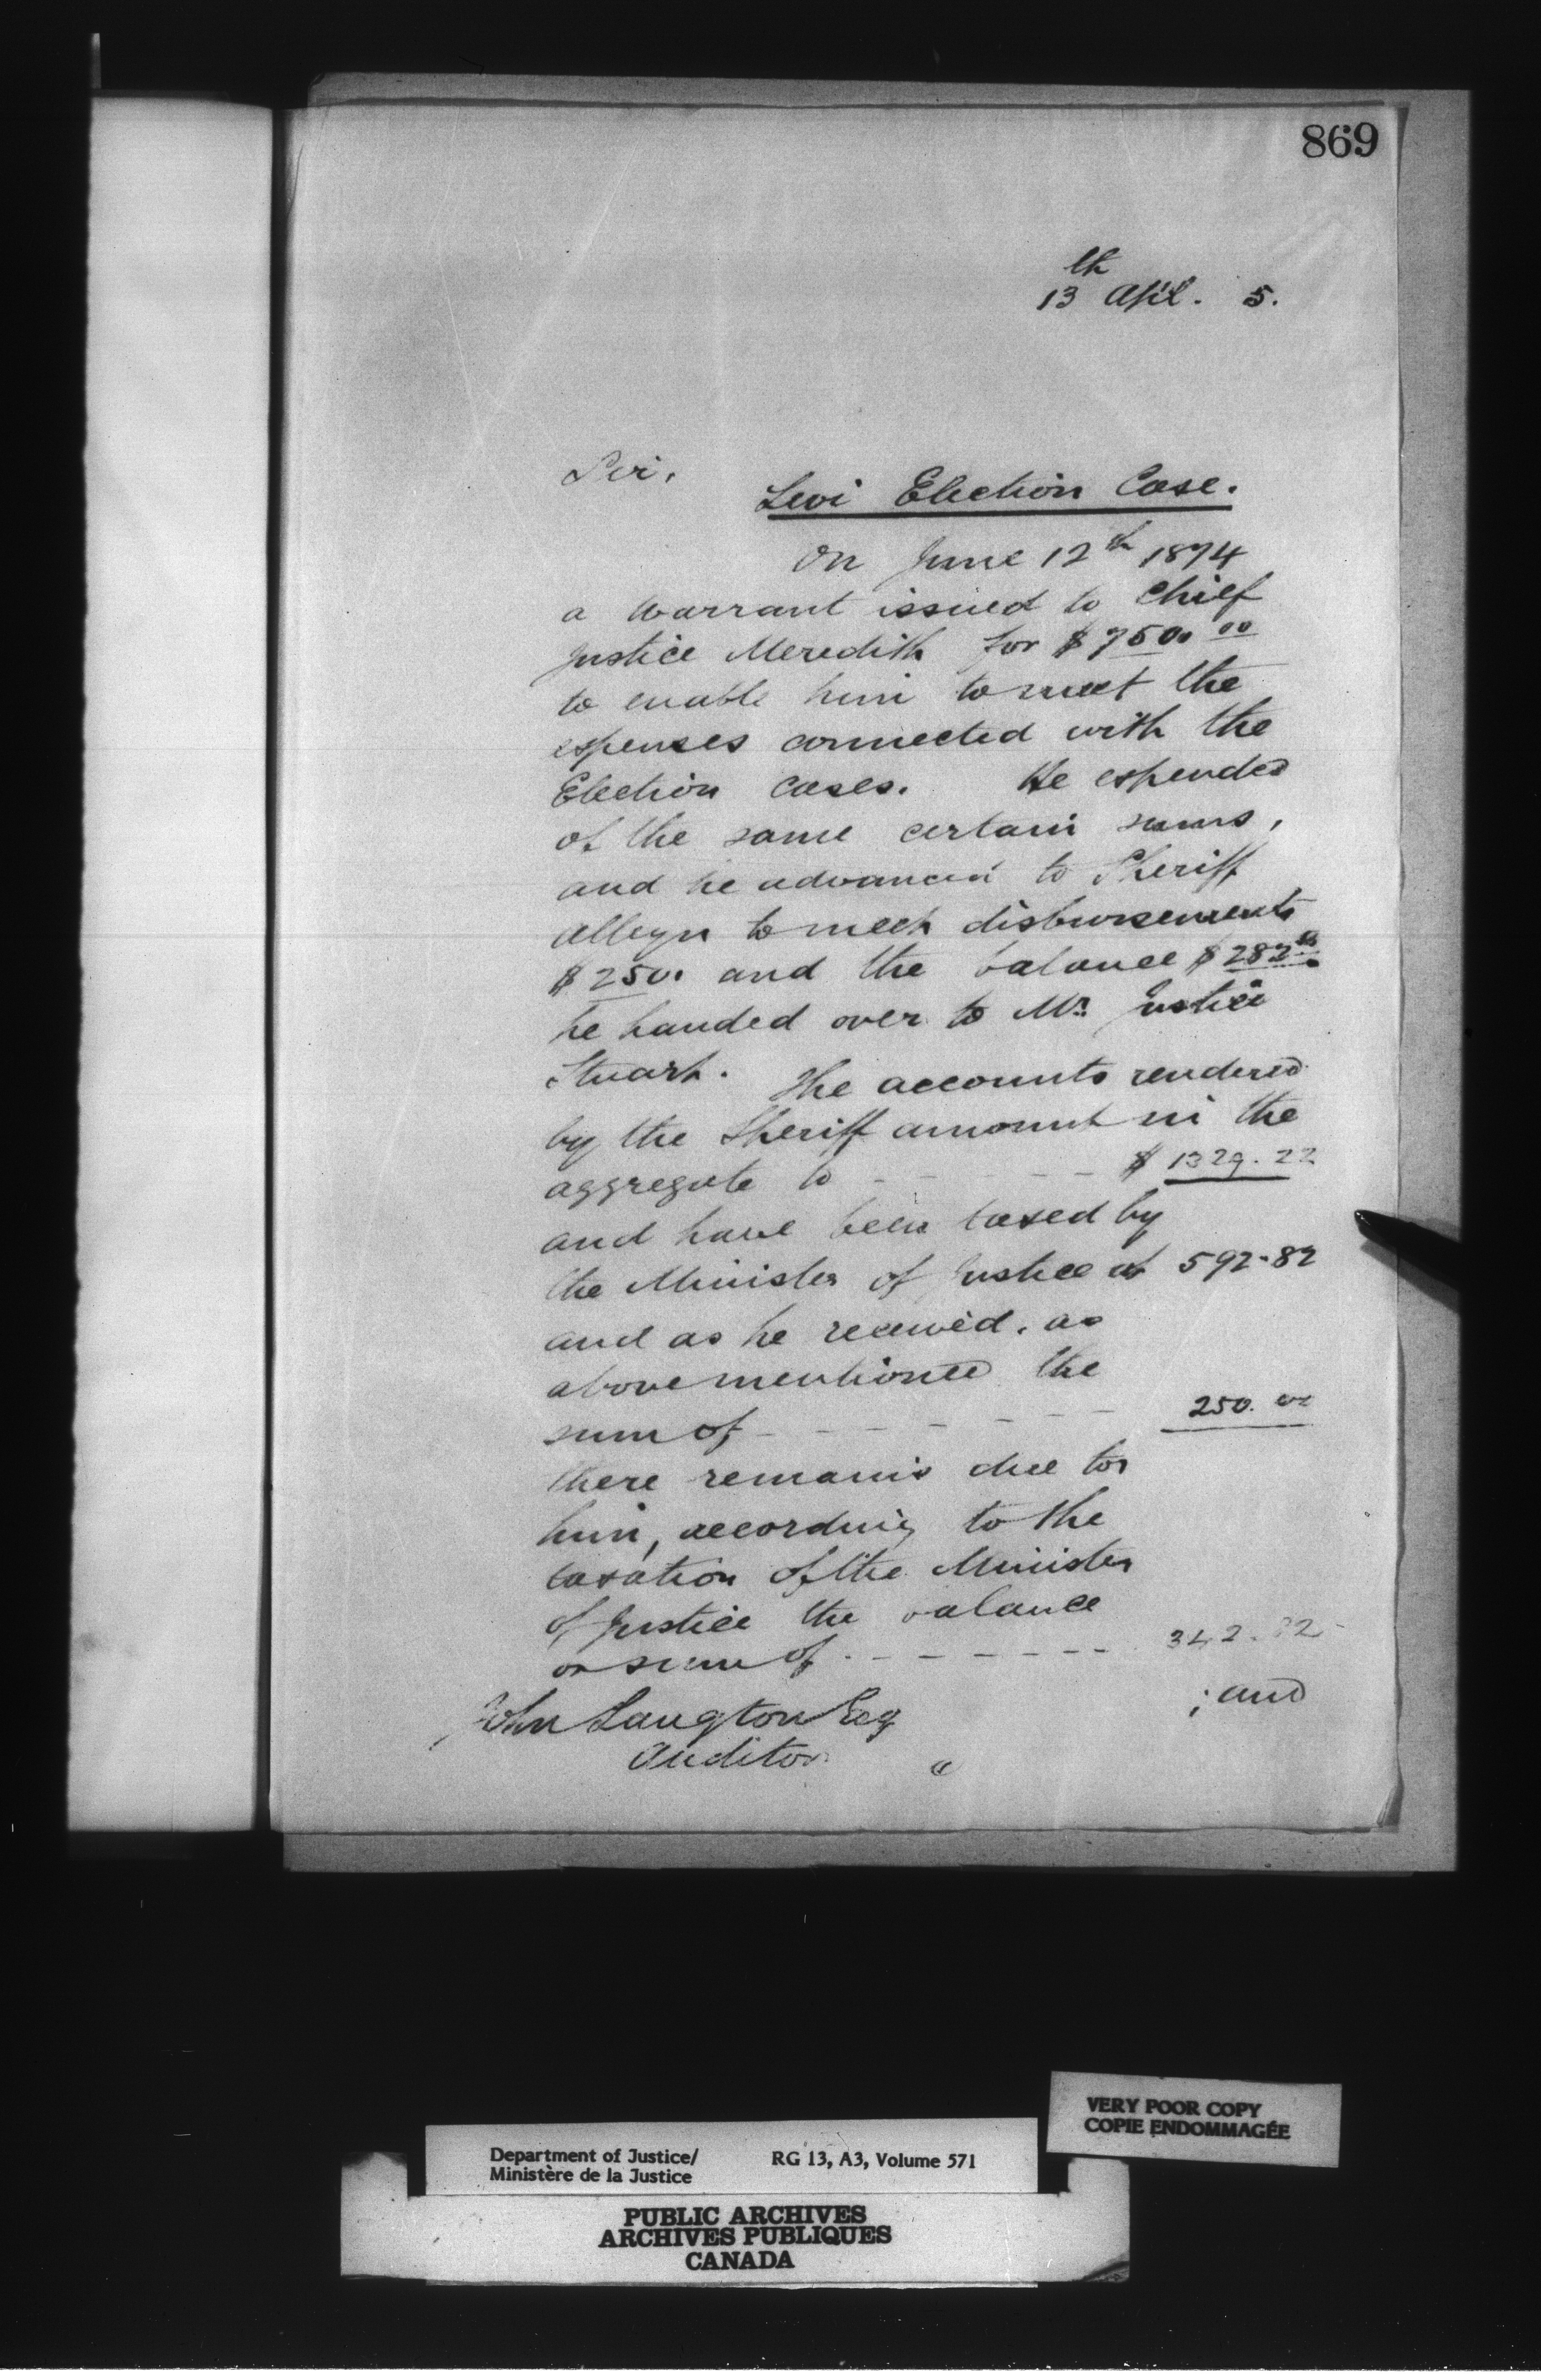 869
13th Apl. 5.
Sir,
Levi Election Case.
On June 12th 1874
a warrant issued to Chief
Justice Meredith for $750.00
to enable him to meet the
expenses connected with the
Election Cases. He expended
of the same certain sums,
and he advanced to Sheriff
Alleyn to meet disbursements
$250. and the balance $282
he handed over to Mr. Justice
Stuart. The accounts rendered
by the Sheriff amount in the
aggregate to - - - - $1329.22
and have been taxed by
the Minister of Justice at 592.82
and as he received, as
above mentioned the
sum of - - - - - - - 250.00
there remains due to
him, according to the
taxation of the Minister
of Justice the balance
or sum of - - - - - - 342.82
; and
John Langton Esq
Auditor "
VERY POOR COPY
COPIE ENDOMMAGÉE
Department of Justice/ RG 13, A3, Volume 571
Ministère de la Justice
PUBLIC ARCHIVES
ARCHIVES PUBLIQUES
CANADA